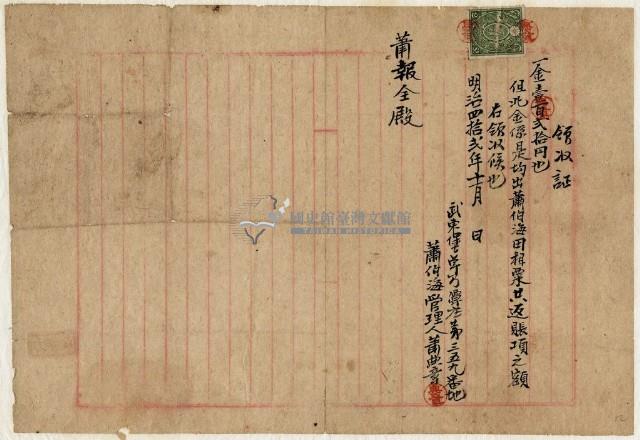 領收証
一金壹百弍拾円也
但此金係是均出蕭伯海田租粟共返賬項之額
右領收候也
明治四拾弍年十一月 日
武東堡
第三五九番地
蕭伯海管理人蕭典章
蕭報全殿
國史館臺灣文獻館
TAIWAN HISTORICA